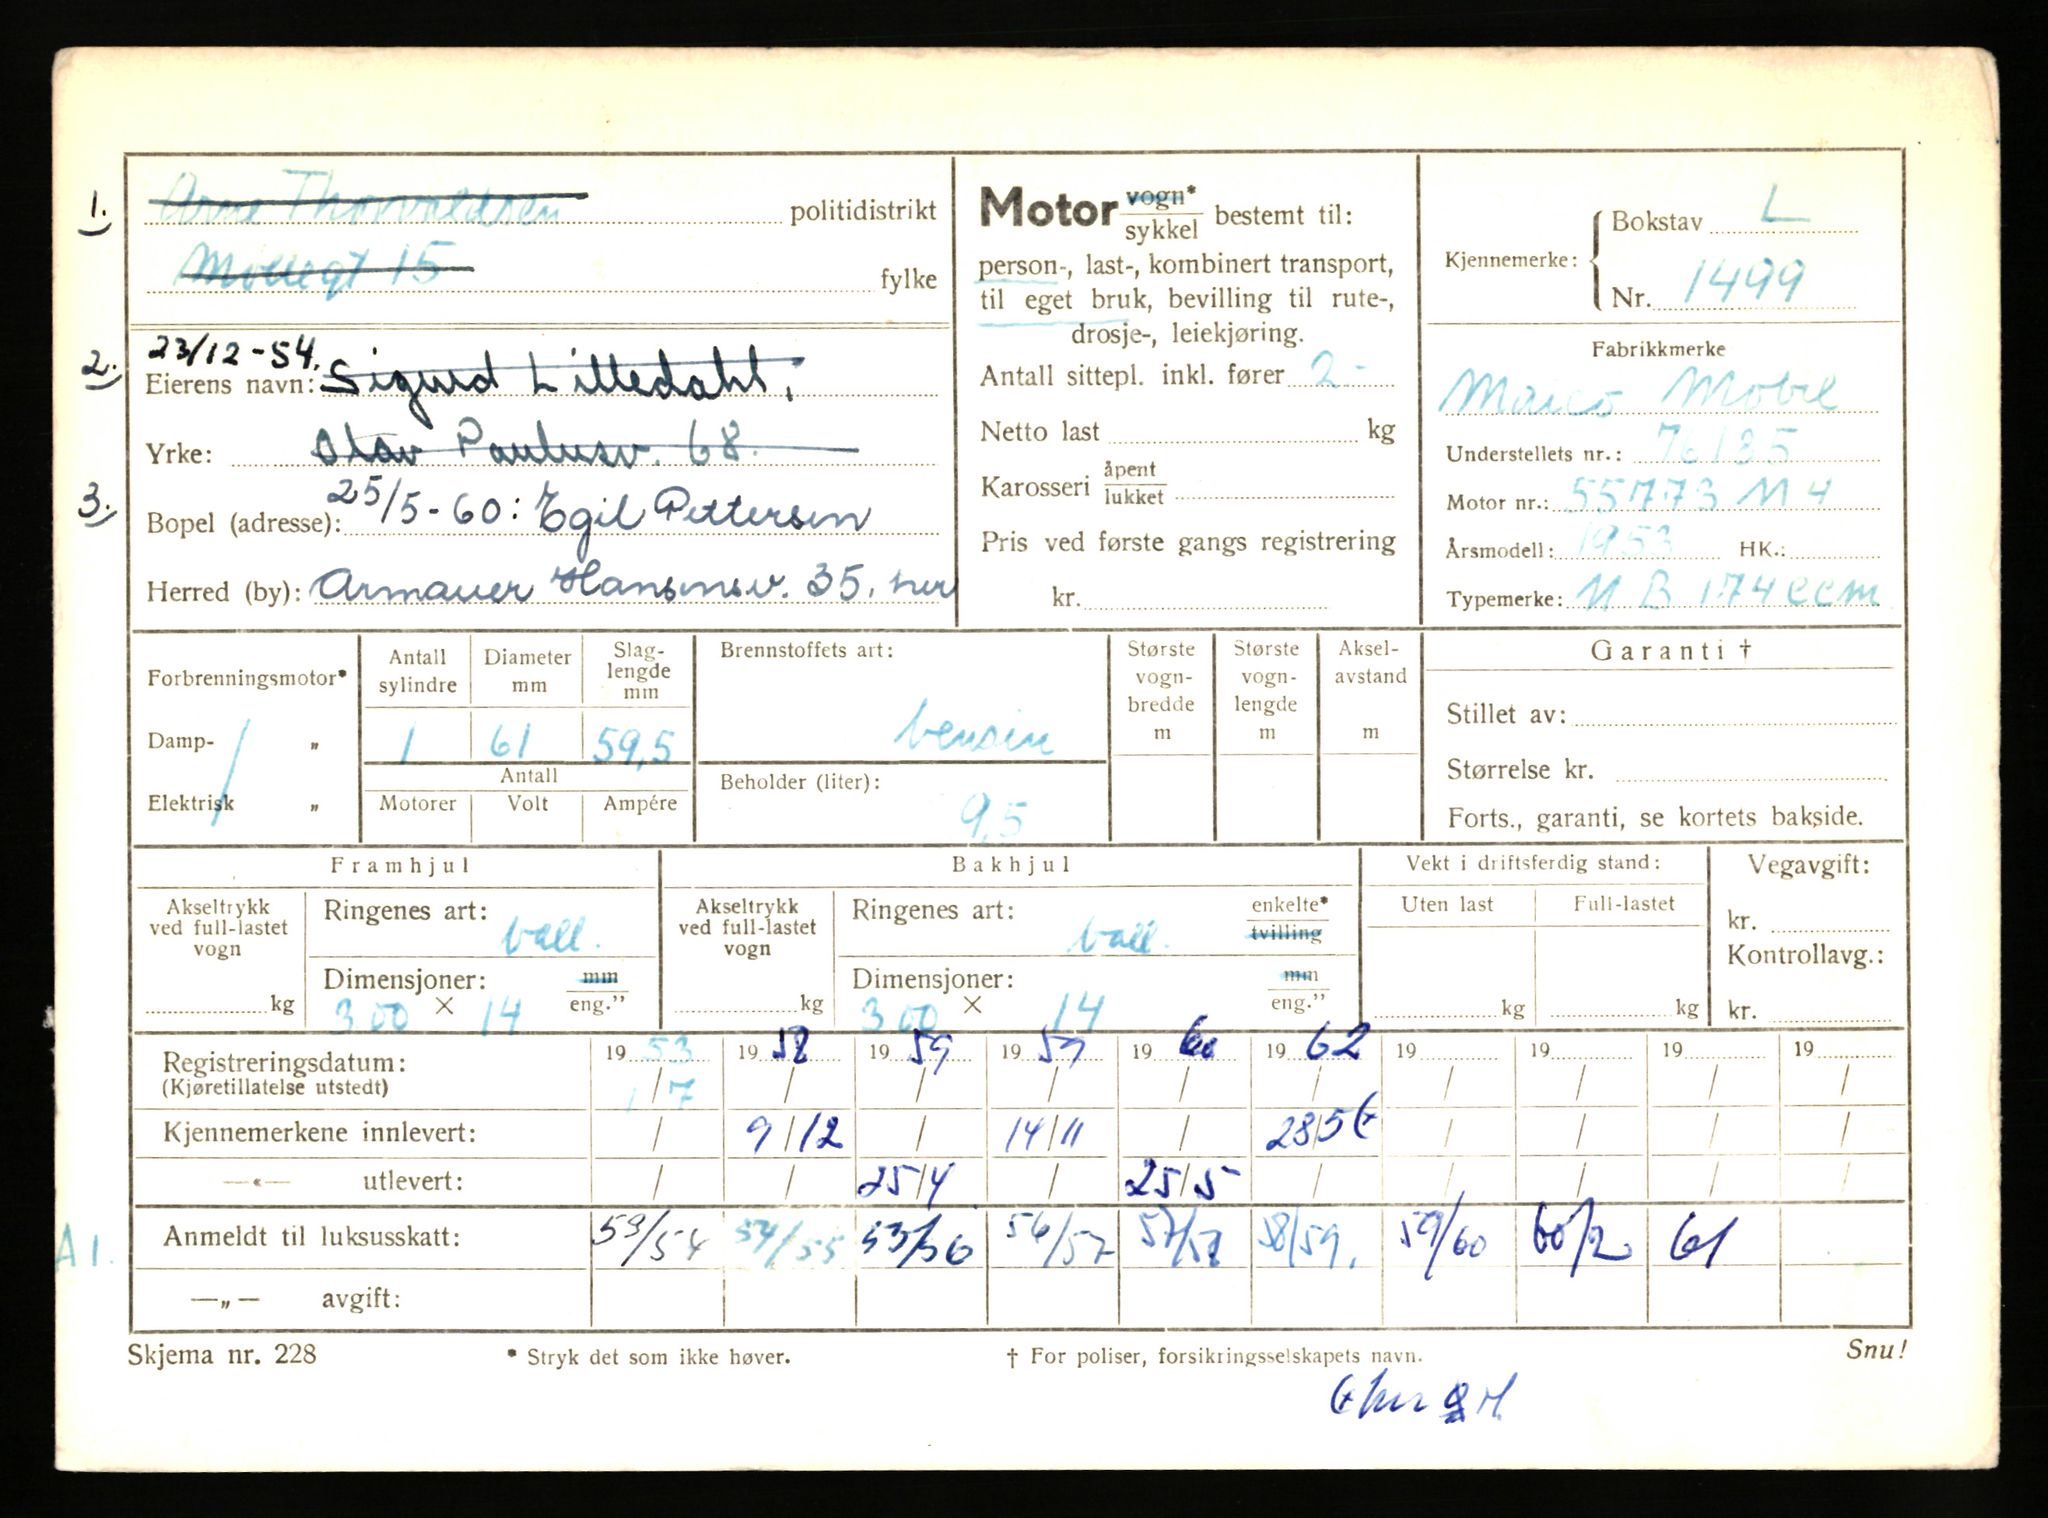 1. Arne Thorvaldsen politidistrikt
Møllegt 15 fylke
23/12-54.
2. Eierens navn: Sigurd Lilledahl,
Yrke: Olav Paulusv. 68.
3. 25/5-60: Egil Pettersen
Bopel (adresse):
Herred (by): Armauer Hansensv. 35. her
Motor vogn* sykkel bestemt til:
person-, last-, kombinert transport,
til eget bruk, bevilling til rute-,
drosje-, leiekjøring.
Antall sittepl. inkl. fører 2-
Netto last kg
Karosseri åpent lukket
Pris ved første gangs registrering
kr.
Kjennemerke: Bokstav L
Nr. 1499
Fabrikkmerke
Maico Mobil
Understellets nr.: 76135
Motor nr.: 55773 M 4
Årsmodell: 1953 HK.:
Typemerke: M B 174 ccm
Forbrenningsmotor*
Damp- „
Elektrisk „
Antall sylindre
Diameter mm
Slag-lengde mm
1 61 59,5
Antall
Motorer Volt Ampére
Brennstoffets art:
bensin
Beholder (liter):
9,5
Største vogn-bredde m
Største vogn-lengde m
Aksel-avstand m
Garanti †
Stillet av:
Størrelse kr.
Forts., garanti, se kortets bakside.
Framhjul
Akseltrykk ved full-lastet vogn
kg
Ringenes art:
ball.
Dimensjoner: mm eng.”
300 × 14
Bakhjul
Akseltrykk ved full-lastet vogn
kg
Ringenes art: enkelte* tvilling
ball.
Dimensjoner: mm eng.”
300 × 14
Vekt i driftsferdig stand:
Uten last Full-lastet
kg kg
Vegavgift:
kr.
Kontrollavg.:
kr.
Registreringsdatum: 1953 1958 1959 1959 1960 1962 19 19 19 19
(Kjøretillatelse utstedt) 1/7 / / / / / / / / /
Kjennemerkene innlevert: / 9/12 / 14/11 / 28/5 / / / /
—«— utlevert: / / 25/4 / 25/5 / / / / /
A1. Anmeldt til luksusskatt: 53/54 54/55 53/56 56/57 57/58 58/59. 59/60 60/2 61
—„— avgift:
Skjema nr. 228
* Stryk det som ikke høver.
† For poliser, forsikringsselskapets navn.
Snu!